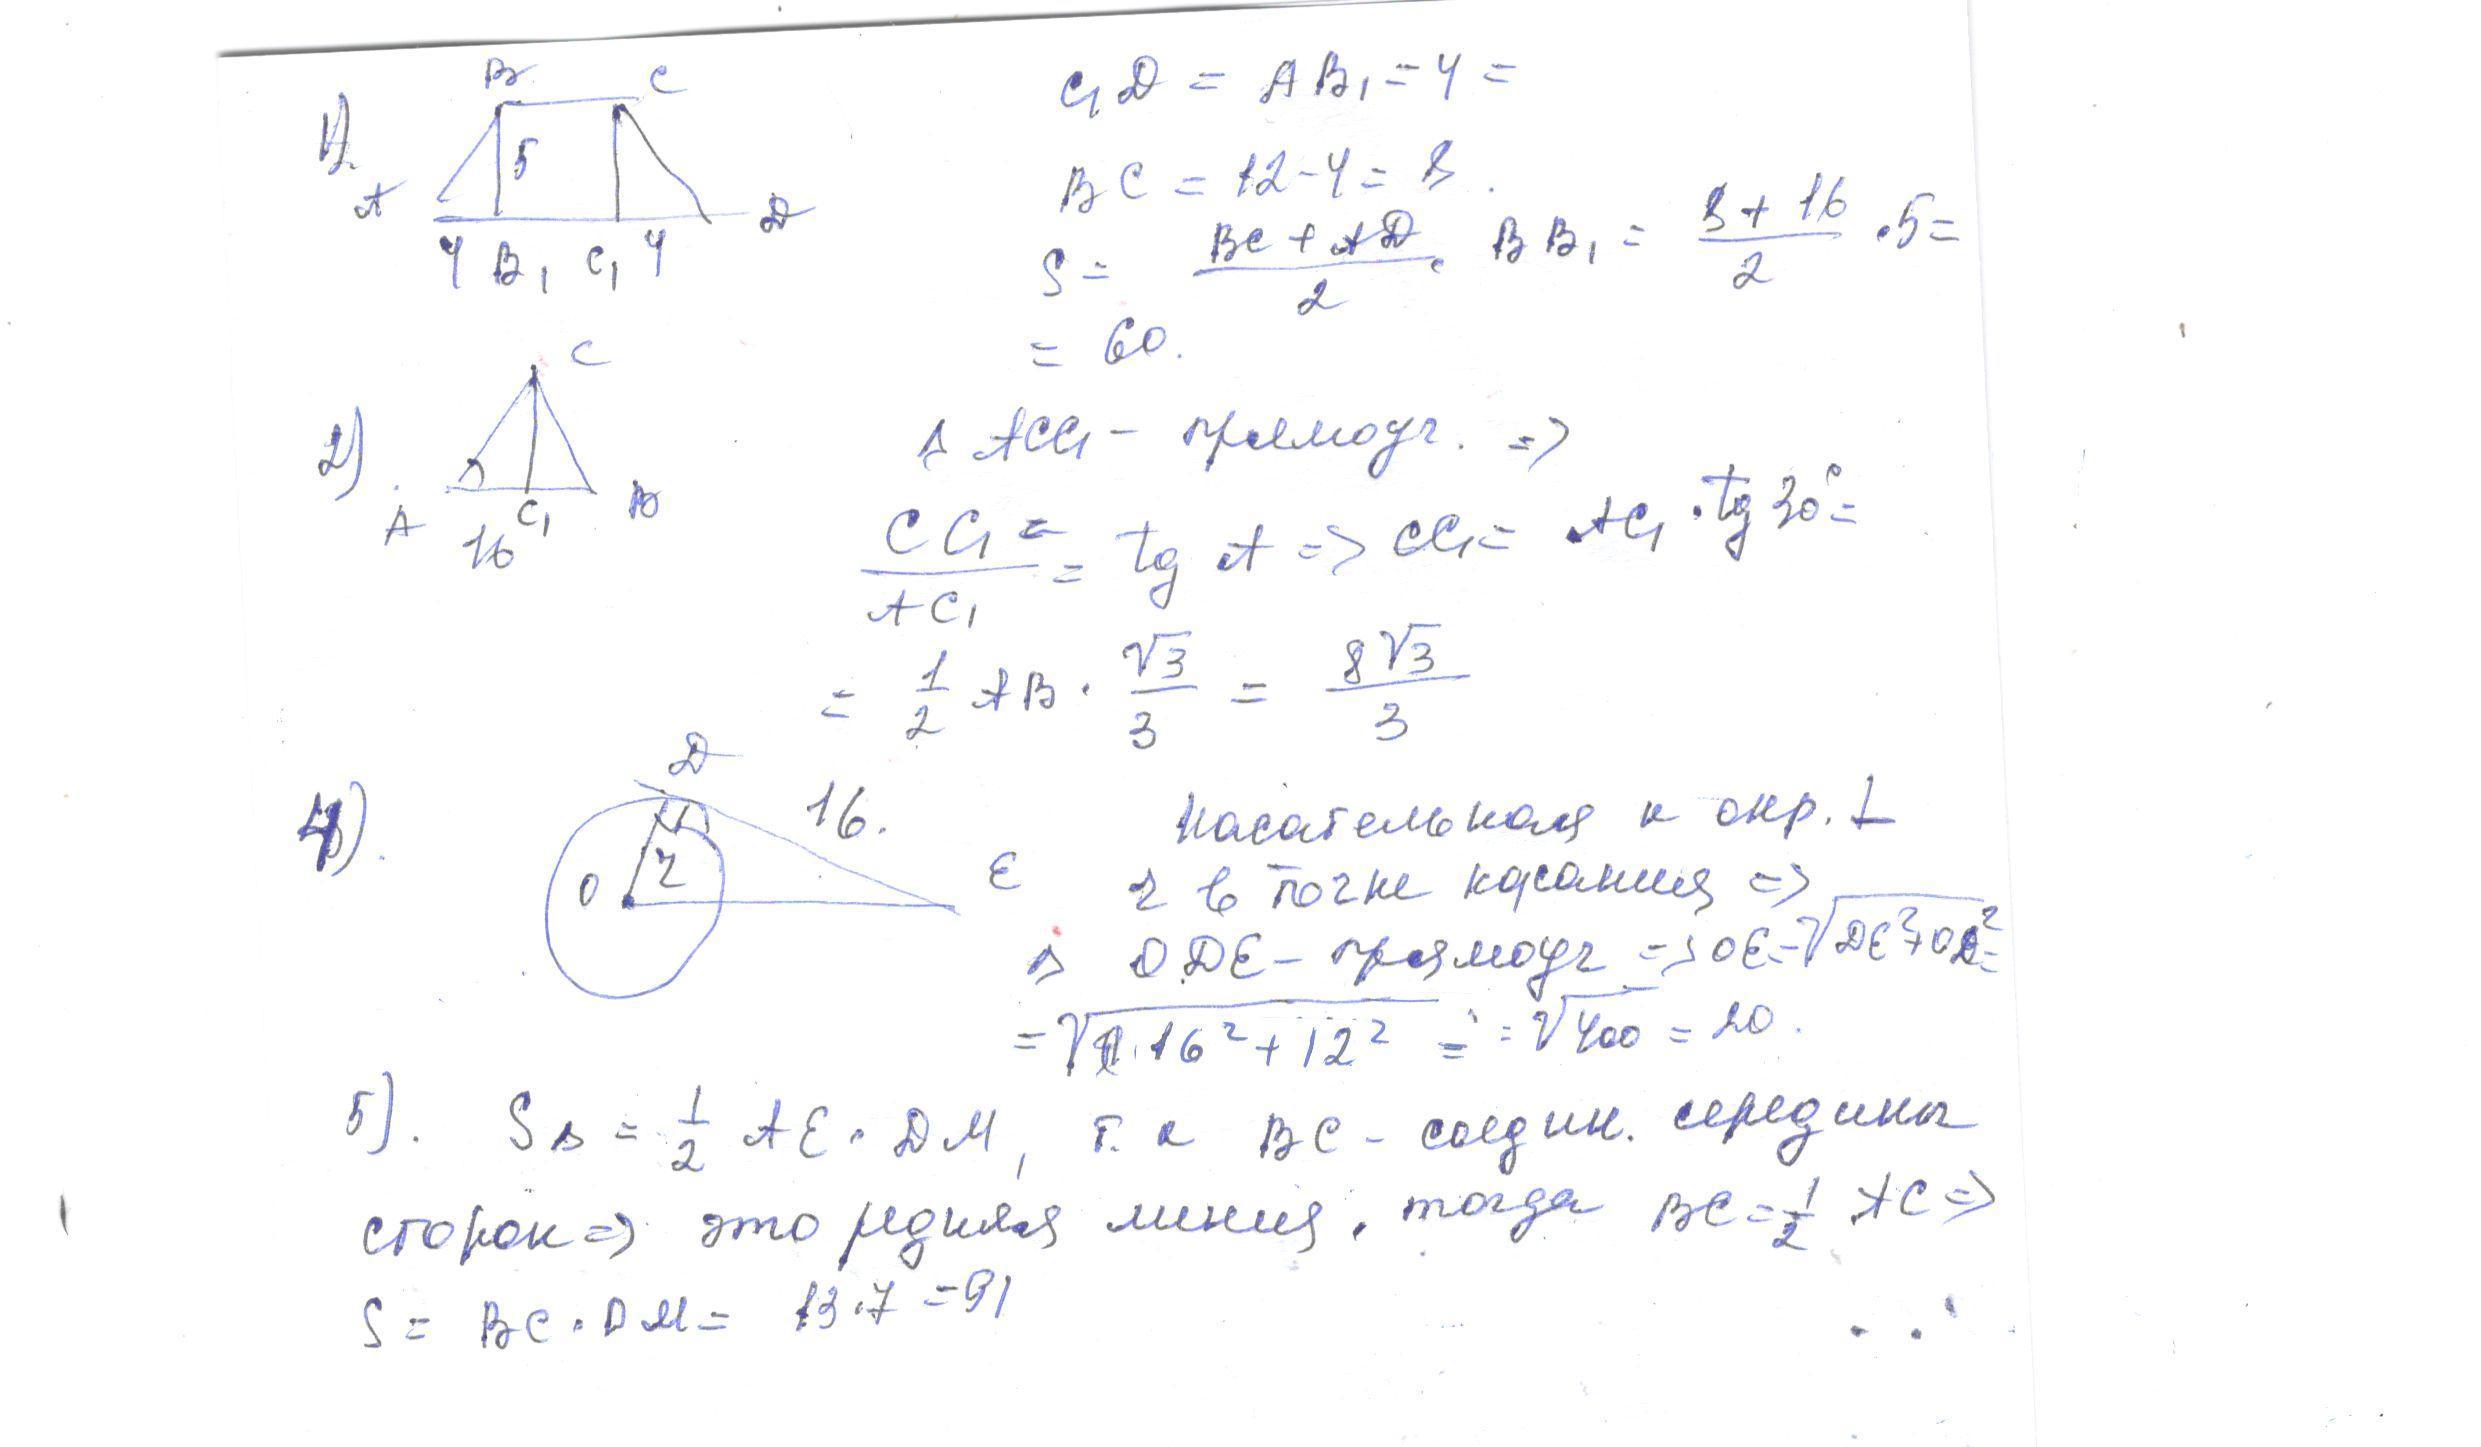 1). B C
5
A D
4 B₁ C₁ 4
C₁D = AB₁ = 4 =
BC = 12 - 4 = 8.
S = (BC + AD)/2 · BB₁ = (8 + 16)/2 · 5 =
= 60.
2) C
A C₁ B
16
Δ ACC₁ - прямоуг. =>
CC₁ =/AC₁ = tg A => CC₁ = AC₁ · tg 30° =
= 1/2 AB · √3/3 = 8√3/3
4). D
16.
O r E
касательная к окр. ⊥
r в точке касания =>
Δ ODE - прямоуг => OE = √(DE² + OD²) =
= √(16² + 12²) = = √400 = 20.
5). SΔ = 1/2 AE · DM, т.к BC - соедин. середины
сторон => это редняя линия, тогда BC = 1/2 AC =>
S = BC · DM = 13·7 = 91